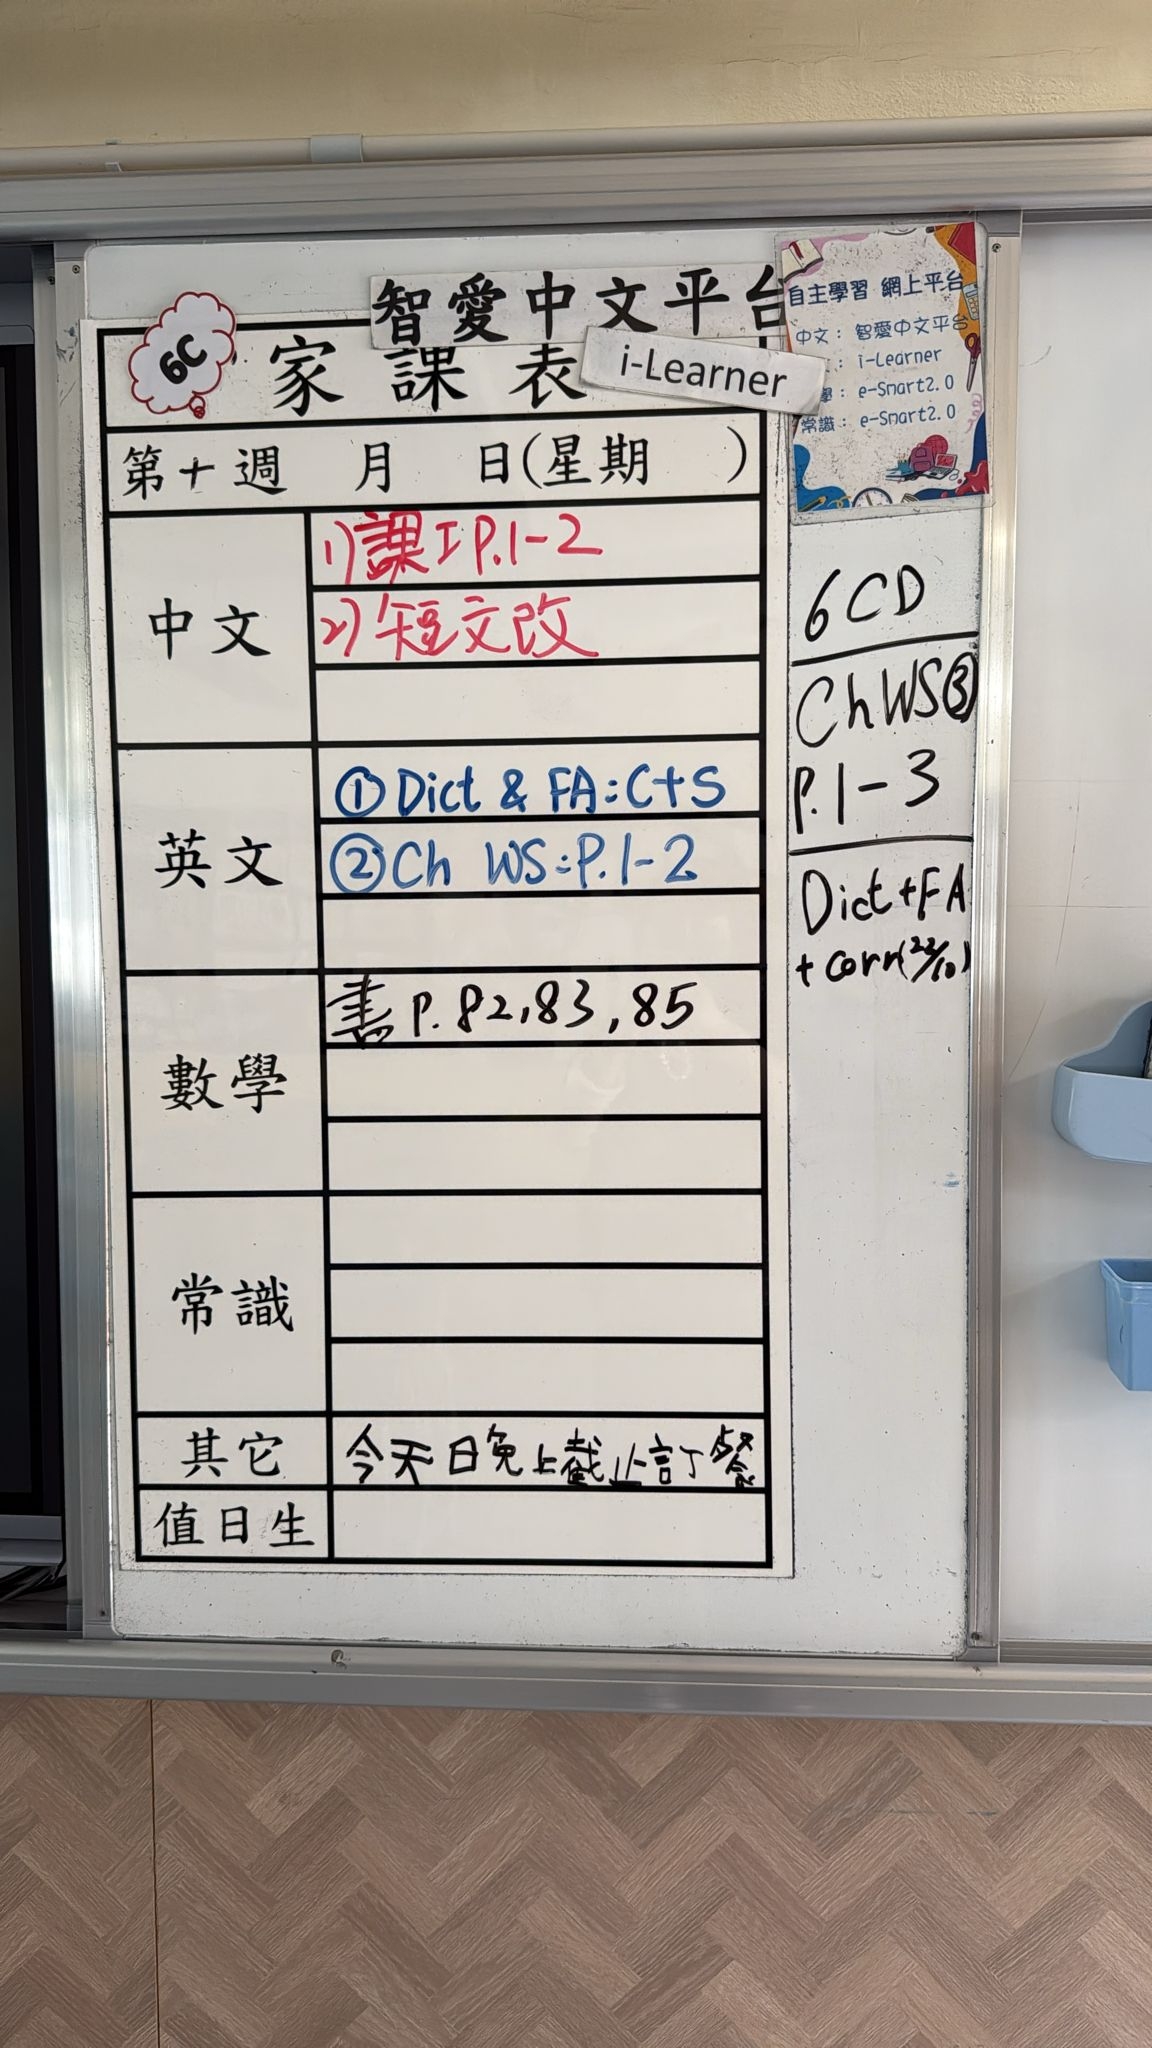 智愛中文平台
6C
家課表
i-Learner
第十週 月 日(星期 )
中文
1)課工P.1-2
2)短文改
英文
①Dict & FA:C+S
②Ch WS:P.1-2
數學
書P.82,83,85
常識
其它
今天日免上截止訂餐
值日生
自主學習 網上平台
中文：智愛中文平台
：i-Learner
學：e-Smart2.0
常識：e-Smart2.0
6CD
Ch WS③
P.1-3
Dict+FA
+corr(22/10)